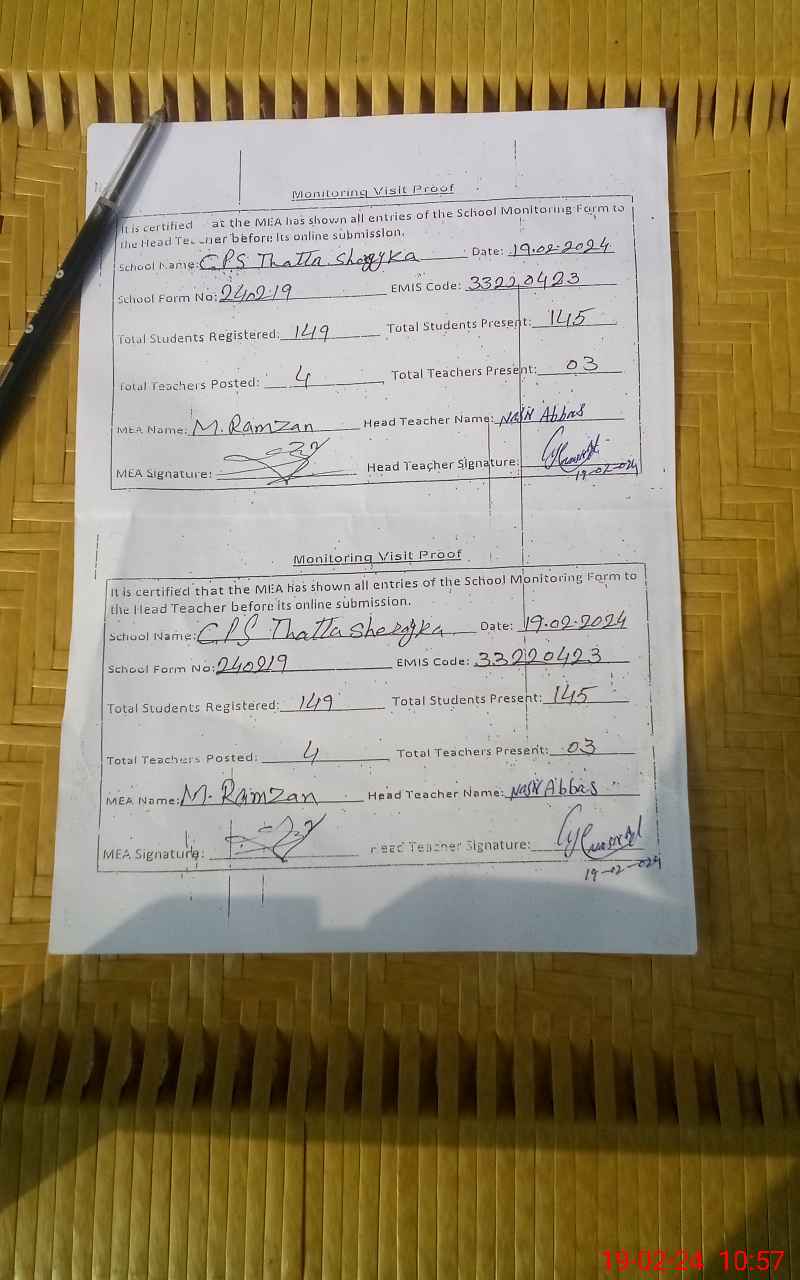 Monitoring Visit Proof
It is certified at the MEA has shown all entries of the School Monitoring Form to
the Head Teacher before its online submission.
School Name: GPS Thatta Date: 19.02.2024
School Form No: 240219 EMIS Code: 33220423
Total Students Registered: 149 Total Students Present: 145
Total Teachers Posted: 4 Total Teachers Present: 03
MEA Name: M. Ramzan Head Teacher Name: Nasir Abbas
MEA Signature: Head Teacher Signature:
19-02-024
Monitoring Visit Proof
It is certified that the MEA has shown all entries of the School Monitoring Form to
the Head Teacher before its online submission.
School Name: GPS Thatta Date: 19.02.2024
School Form No: 240219 EMIS Code: 33220423
Total Students Registered: 149 Total Students Present: 145
Total Teachers Posted: 4 Total Teachers Present: 03
MEA Name: M. Ramzan Head Teacher Name: Nasir Abbas
MEA Signature: Head Teacher Signature:
19-02-024
19-02-24 10:57